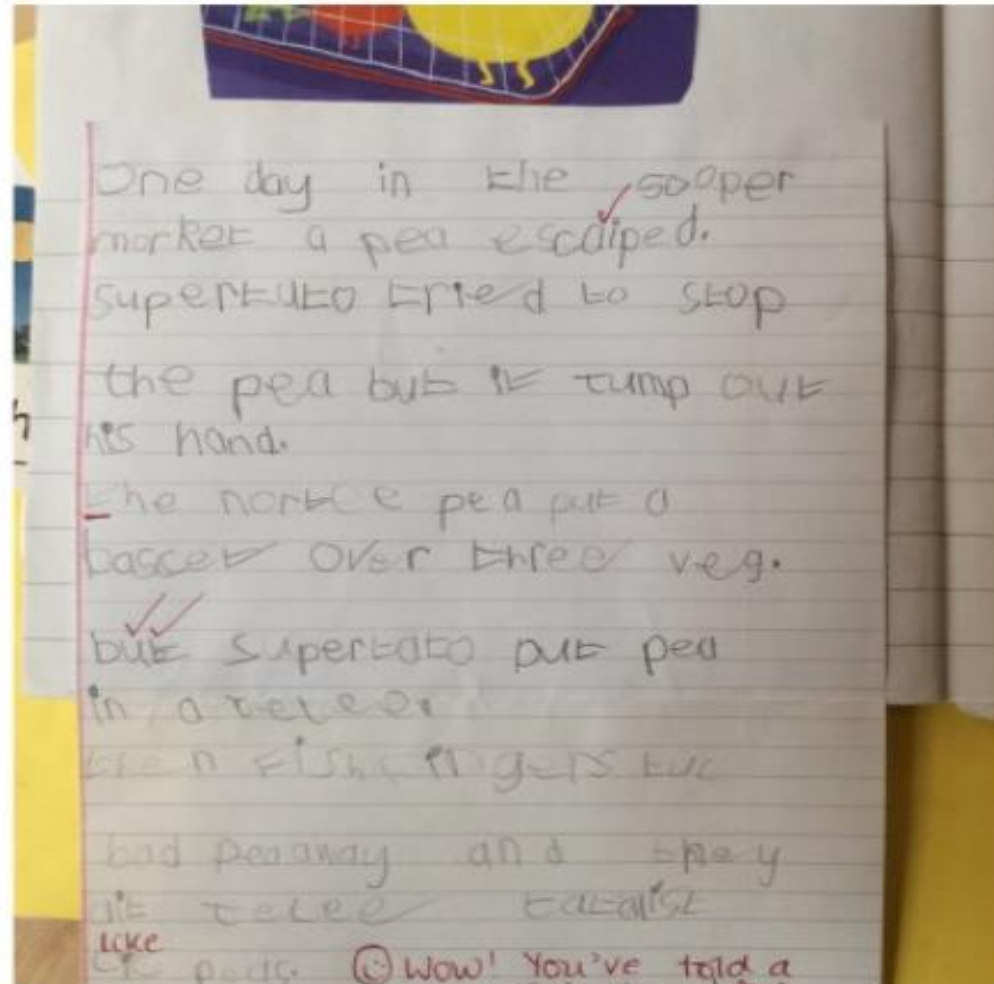 One day in the sooper
market a pea escaiped.
supertuto tried to stop
the pea but it jump out
his hand.
the nortee pea put a
bascet over three veg.
but supertato put pea
in a
then fish fingers tuc
bad pea away and they
ait
like
peas. Wow! You've told a